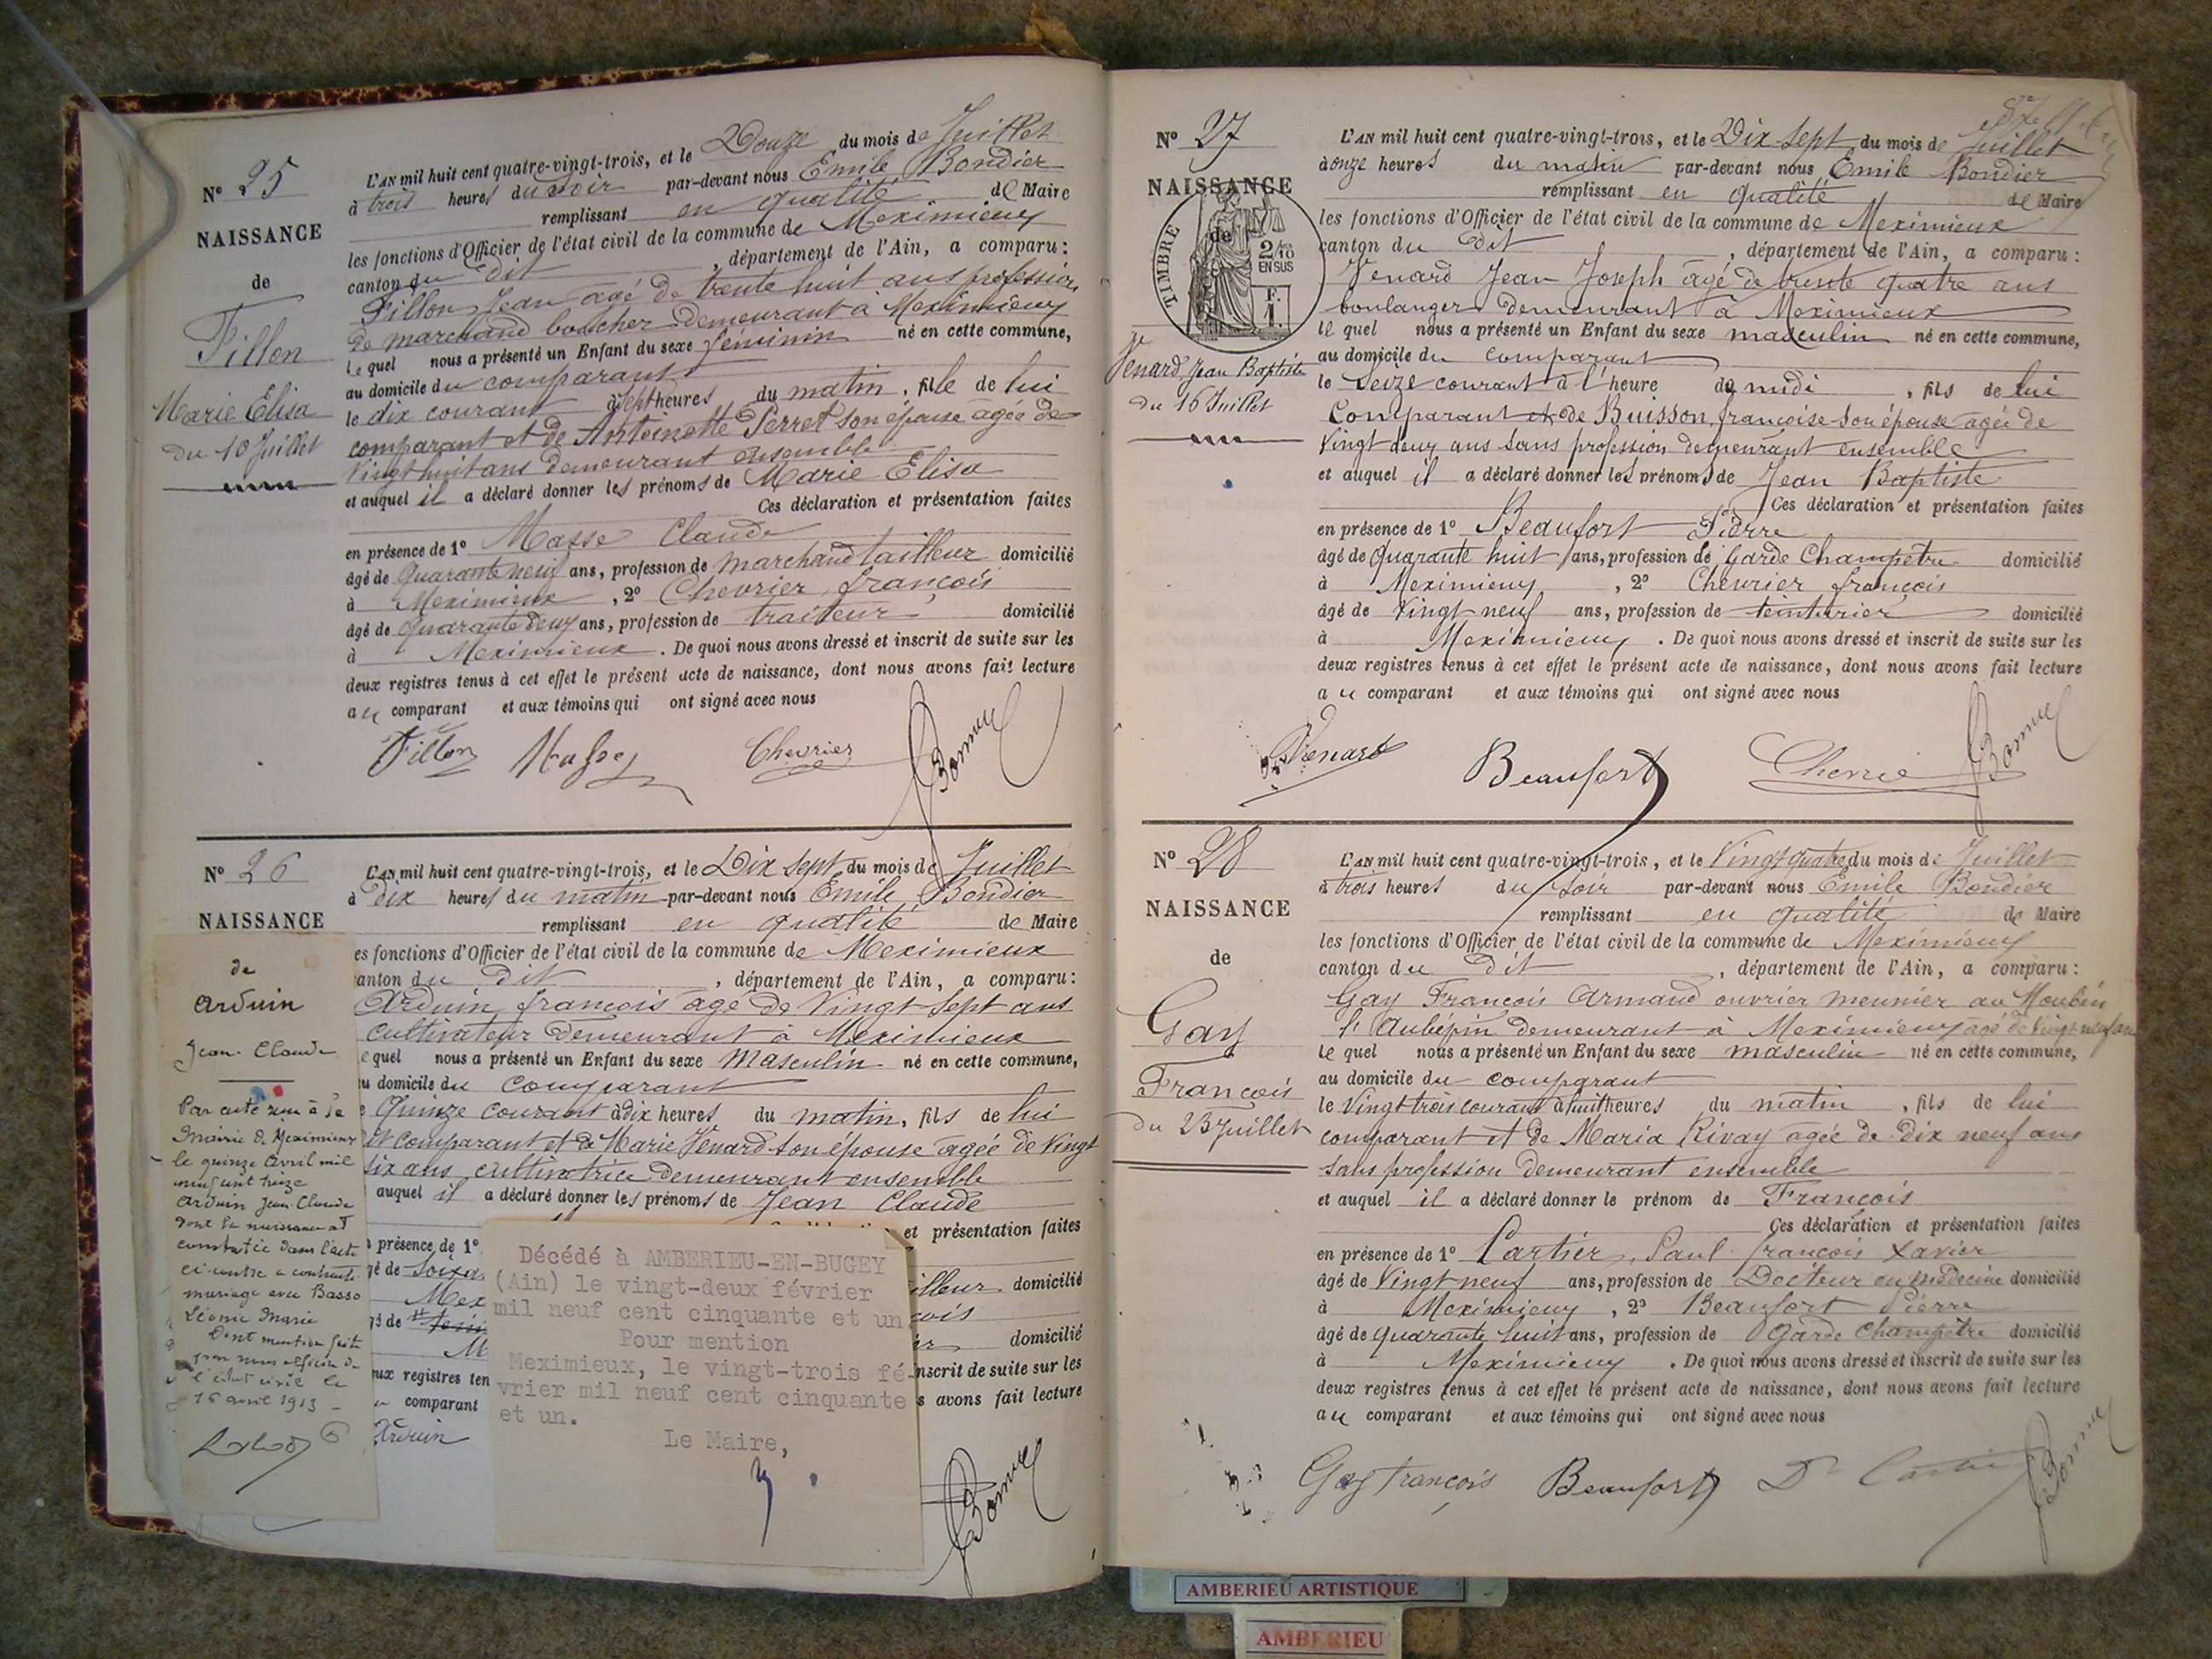 N° 25
NAISSANCE
de
Fillon
Marie Elisa
du 10 Juillet
L'AN mil huit cent quatre-vingt-trois, et le Douze du mois de Juillet
à trois heures du soir par-devant nous Emile Bondier
remplissant en qualité de Maire
les fonctions d'Officier de l'état civil de la commune de Meximieux
canton du dit, département de l'Ain, a comparu :
Fillon Jean agé de trente huit ans profession
de marchand boucher demeurant à Meximieux
lequel nous a présenté un Enfant du sexe féminin né en cette commune,
au domicile du comparant
le dix courant à sept heures du matin, fille de lui
comparant et de Antoinette Perret son épouse agée de
vingt huit ans demeurant ensemble
et auquel il a déclaré donner les prénoms de Marie Elisa
Ces déclaration et présentation faites
en présence de 1° Masse Claude
âgé de quarante neuf ans, profession de marchand tailleur domicilié
à Meximieux, 2° Chevrier françois
âgé de quarante deux ans, profession de traiteur domicilié
à Meximieux. De quoi nous avons dressé et inscrit de suite sur les
deux registres tenus à cet effet le présent acte de naissance, dont nous avons fait lecture
au comparant et aux témoins qui ont signé avec nous
Fillon Masse Chevrier
N° 26
NAISSANCE
de
Arduin
Jean-Claude
Par acte reçu à la
Mairie de Meximieux
le quinze Avril mil
neuf cent treize
Arduin Jean-Claude
dont la naissance est
constatée dans l'acte
ci-contre a contracté
mariage avec Basso
Léonie Marie
Dont mention faite
par nous officier de
l'état civil le
16 avril 1913
L'AN mil huit cent quatre-vingt-trois, et le Dix sept du mois de Juillet
à dix heures du matin par-devant nous Emile Bondier
remplissant en qualité de Maire
es fonctions d'Officier de l'état civil de la commune de Meximieux
anton du dit, département de l'Ain, a comparu :
Arduin françois agé de vingt sept ans
cultivateur demeurant à Meximieux
equel nous a présenté un Enfant du sexe masculin né en cette commune,
u domicile du comparant
quinze courant à dix heures du matin, fils de lui
dit comparant et de Marie Venard son épouse agée de vingt
six ans cultivatrice demeurant ensemble
auquel il a déclaré donner les prénoms de Jean Claude
et présentation faites
présence de 1°
gé de soixa
illeur domicilié
Mex
çois
gé de
er domicilié
M
nscrit de suite sur les
ux registres ten
s avons fait lecture
comparant
Arduin
Décédé à AMBERIEU-EN-BUGEY
(Ain) le vingt-deux février
mil neuf cent cinquante et un
Pour mention
Meximieux, le vingt-trois fé-
vrier mil neuf cent cinquante
et un.
Le Maire,
N° 27
NAISSANCE
de
TIMBRE
2/10
EN SUS
F.
1.
Venard Jean Baptiste
du 16 Juillet
L'AN mil huit cent quatre-vingt-trois, et le Dix-sept du mois de Juillet
à onze heures du matin par-devant nous Emile Bondier
remplissant en qualité de Maire
les fonctions d'Officier de l'état civil de la commune de Meximieux
canton du dit, département de l'Ain, a comparu :
Venard Jean Joseph agé de trente quatre ans
boulanger demeurant à Meximieux
lequel nous a présenté un Enfant du sexe masculin né en cette commune,
au domicile du comparant
le seize courant à l'heure de midi, fils de lui
comparant et de Buisson françoise son épouse agée de
vingt deux ans sans profession demeurant ensemble
et auquel il a déclaré donner les prénoms de Jean Baptiste
Ces déclaration et présentation faites
en présence de 1° Beaufort Pierre
âgé de quarante huit ans, profession de garde Champetre domicilié
à Meximieux, 2° Chevrier françois
âgé de vingt neuf ans, profession de teinturier domicilié
à Meximieux. De quoi nous avons dressé et inscrit de suite sur les
deux registres tenus à cet effet le présent acte de naissance, dont nous avons fait lecture
au comparant et aux témoins qui ont signé avec nous
Venard Beaufort
N° 28
NAISSANCE
de
Gay
François
du 23 Juillet
L'AN mil huit cent quatre-vingt-trois, et le Vingt quatre du mois de Juillet
à trois heures du soir par-devant nous Emile Bondier
remplissant en qualité de Maire
les fonctions d'Officier de l'état civil de la commune de Meximieux
canton du dit, département de l'Ain, a comparu :
Gay François Armand ouvrier meunier au Moulin
l'Aubépin demeurant à Meximieux agé de vingt neuf ans
lequel nous a présenté un Enfant du sexe masculin né en cette commune,
au domicile du comparant
le vingt trois courant à huit heures du matin, fils de lui
comparant et de Maria Rivay agée de dix neuf ans
sans profession demeurant ensemble
et auquel il a déclaré donner le prénom de François
Ces déclaration et présentation faites
en présence de 1° Cartier, Paul françois Xavier
âgé de vingt neuf ans, profession de Docteur en médecine domicilié
à Meximieux, 2° Beaufort Pierre
âgé de quarante huit ans, profession de Garde Champêtre domicilié
à Meximieux. De quoi nous avons dressé et inscrit de suite sur les
deux registres tenus à cet effet le présent acte de naissance, dont nous avons fait lecture
au comparant et aux témoins qui ont signé avec nous
Gay françois Beaufort Dr Cartier
AMBERIEU ARTISTIQUE
AMBERIEU